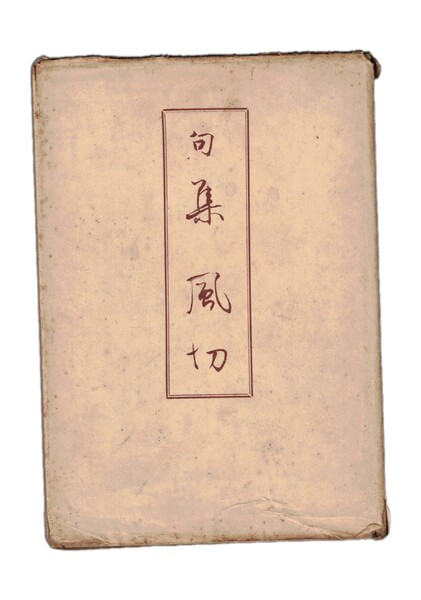 句集 風切